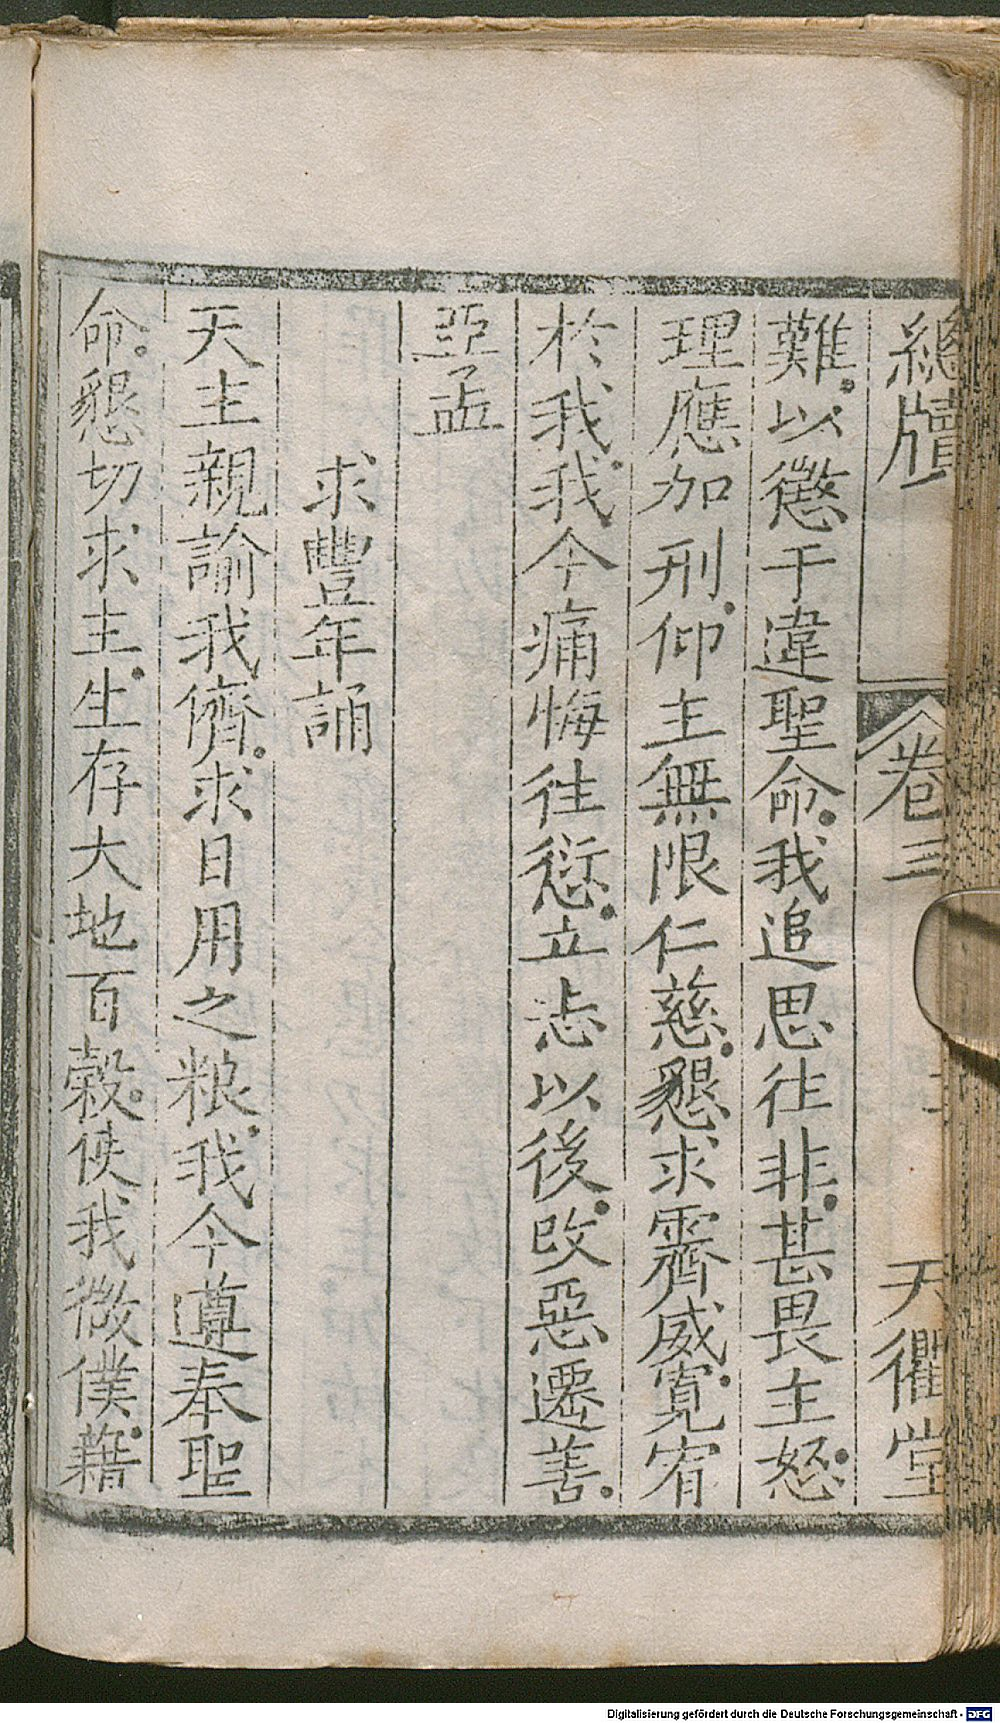 總牘 卷三 天衢堂
難。以懲于違聖命。我追思往非。甚畏主怒。
理應加刑。仰主無限仁慈。懇求霽威。寬宥
於我。我今痛悔往愆。立志以後。改惡遷善。
亞孟
求豐年誦
天主親諭我儕。求日用之粮。我今遵奉聖
命。懇切求主。生存大地百穀。使我微僕。藉
Digitalisierung gefördert durch die Deutsche Forschungsgemeinschaft - DFG